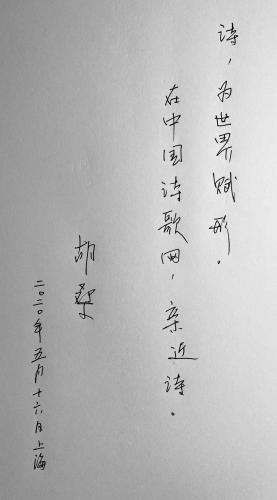 诗，为世界赋形。
在中国诗歌网，亲近诗。
胡桑
二〇二〇年五月十六日上海